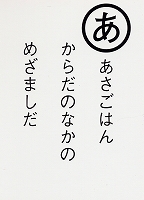 あ
あさごはん
からだのなかの
めざましだ